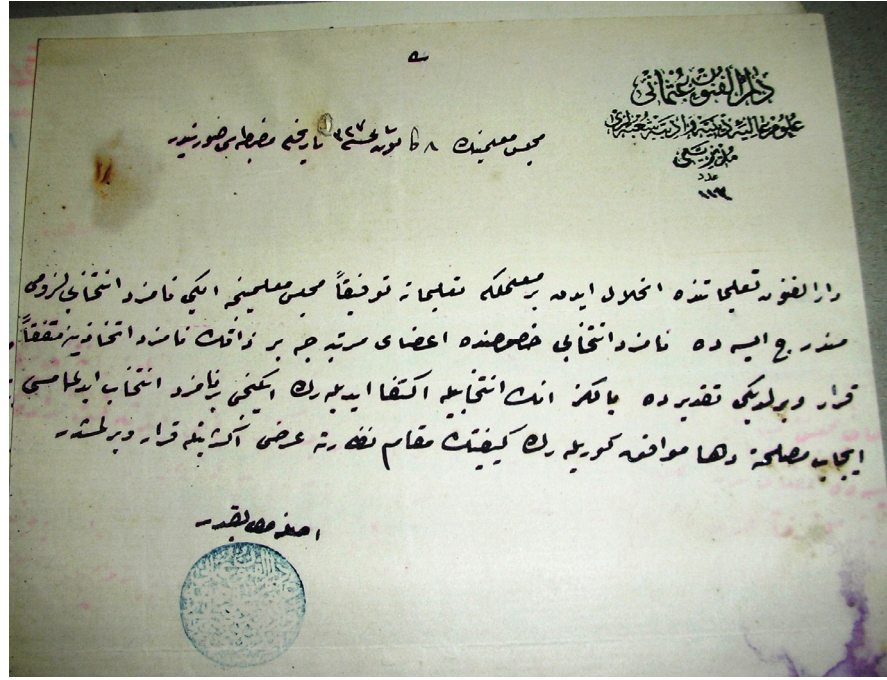 دارالفنون عثمانی
علوم عالیهٔ دینیه و ادبیه شعبه‌لری
مدیریتی
عدد
١١٣
مجلس معلمینك ٨ كانون ٣٢٧ تاریخلی مضبطه‌سی صورتیدر
دارالفنون تعلیماتنده انحلال ایدن بر معلملكه تعلیماته توفیقاً مجلس معلمینجه ایكی نامزد انتخابی لزومی
مندرج ایسه ده نامزد انتخابی خصوصنده اعضای مرتبه‌جه بر ذاتك نامزد اتخاذینه متفقاً
قرار ویرلدیكی تقدیرده یالكز انك انتخابیله اكتفا ایدیله‌رك ایكنجی بر نامزد انتخاب ایدلمامسی
ایجاب مصلحته دها موافق كوریله‌رك كیفیتك مقام نظارته عرضی اكثریتله قرار ویرلمشدر
اصلنه مطابقدر